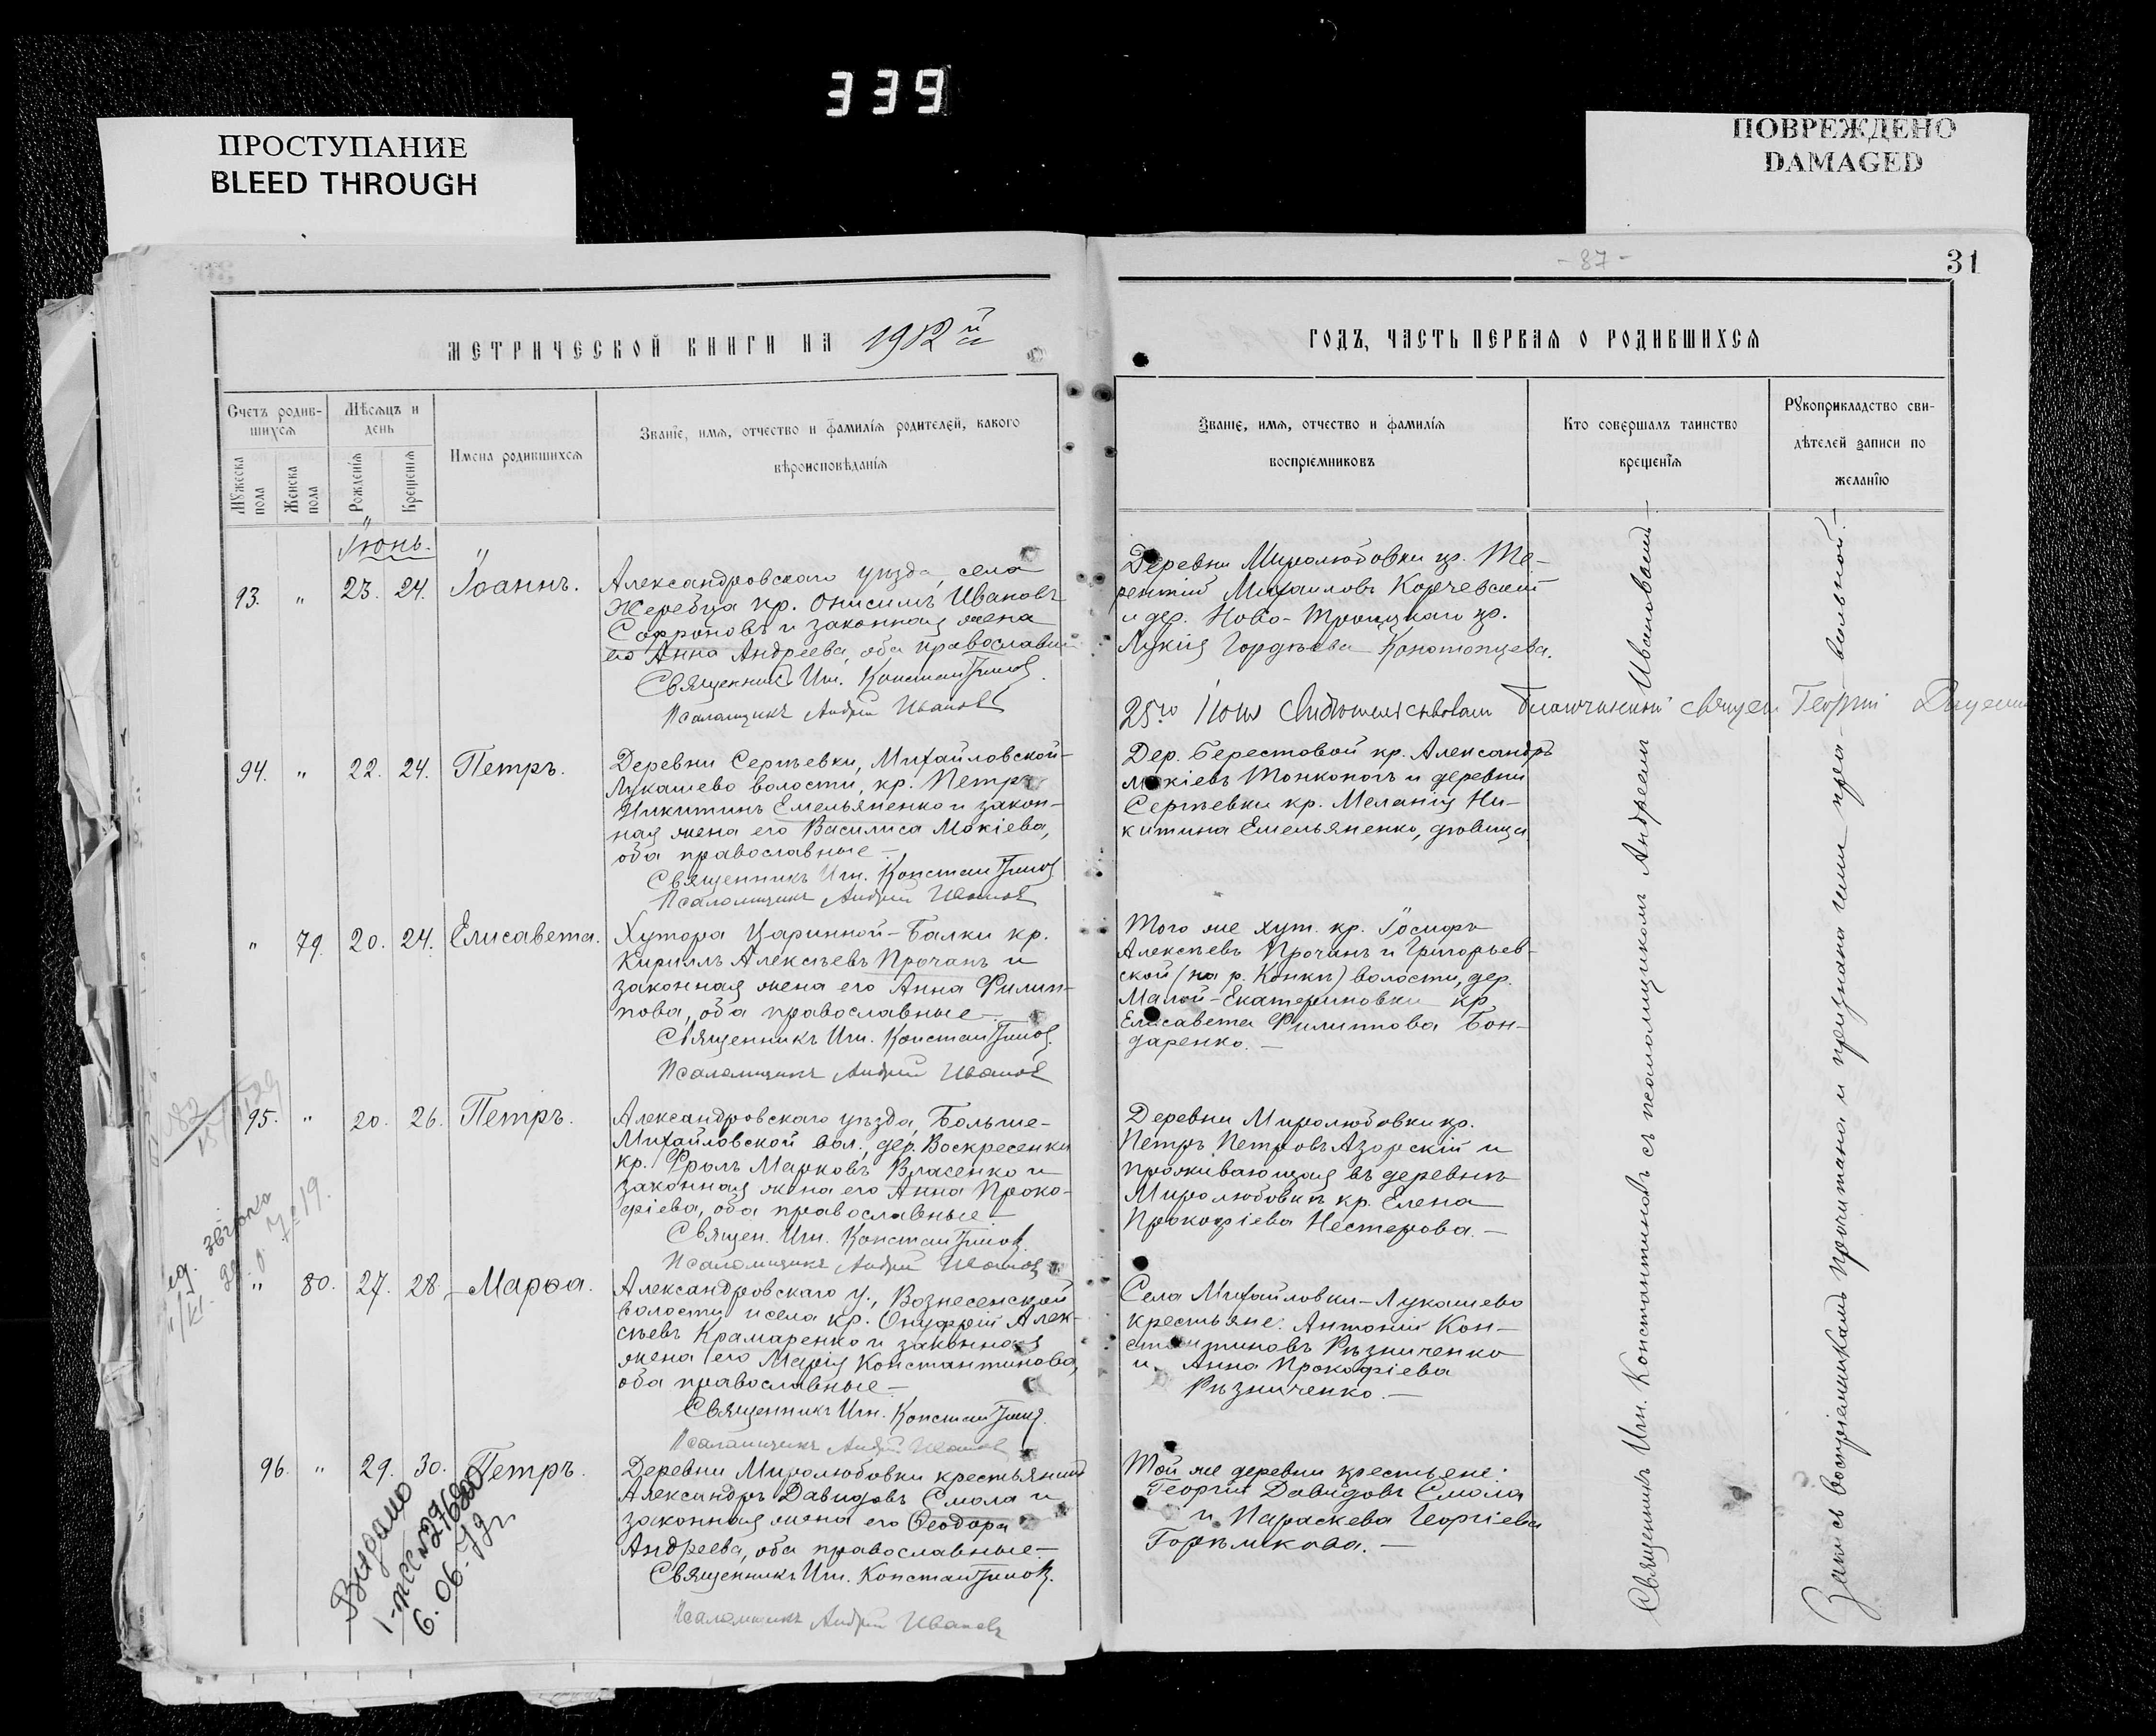 339
ПРОСТУПАНИЕ
BLEED THROUGH
ПОВРЕЖДЕНО
DAMAGED
- 87 -
31
МЕТРИЧЕСКОЙ КНИГИ НА 1912й
ГОДЪ, ЧАСТЬ ПЕРВАЯ О РОДИВШИХСЯ
Счетъ родив-
шихся
Мужеска пола
Женска пола
Мѣсяцъ и
день
Рожденія
Крещенія
Имена родившихся
Званіе, имя, отчество и фамилія родителей, какого
вѣроисповѣданія
Званіе, имя, отчество и фамилія
воспріемниковъ
Кто совершалъ таинство
крещенія
Рукоприкладство сви-
дѣтелей записи по
желанію
Іюнь.
93. " 23. 24. Іоаннъ.
Александровскаго уѣзда, села
Жеребца кр. Онисимъ Ивановъ
Софроновъ и законная жена
его Анна Андреева, оба православн
Священникъ Игн. Константиновъ
Псаломщикъ Андрей Ивановъ
Деревни Миролюбовки кр. Те-
рентій Михаиловъ Корчевскій
и дер. Ново-Троицкаго кр.
Лукія Гордѣева Конотопцева.
25го Іюня свидѣтельствовалъ Благочинный Священ Георгій
94. " 22. 24. Петръ.
Деревни Сергѣевки, Михайловской-
Лукашево волости, кр. Петръ
Никитинъ Емельяненко и закон-
ная жена его Василиса Мокіева,
оба православные –
Священникъ Игн. Константиновъ
Псаломщикъ Андрей Ивановъ
Дер. Берестовой кр. Александръ
Мокіевъ Тонконогъ и деревни
Сергѣевки кр. Меланія Ни-
китина Емельяненко, дѣвица
" 79. 20. 24. Елисавета.
Хутора Царинной-Балки кр.
Кириллъ Алексѣевъ Прочанъ и
законная жена его Анна Филип-
пова, оба православные –
Священникъ Игн. Константиновъ.
Псаломщикъ Андрей Ивановъ
Того же хут. кр. Іосифъ
Алексѣевъ Прочанъ и Григорьев-
ской (на р. Конкѣ) волости, дер.
Малой-Екатериновки кр.
Елисавета Филиппова Бон-
даренко. –
95. " 20. 26. Петръ.
Александровскаго уѣзда, Больше-
Михайловской вол., дер. Воскресенки
кр. Фролъ Марковъ Власенко и
законная жена его Анна Проко-
фіева, оба православные –
Священ. Игн. Константиновъ.
Псаломщикъ Андрей Ивановъ
Деревни Миролюбовки кр.
Петръ Петровъ Азорскій и
проживающая въ деревнѣ
Миролюбовкѣ кр. Елена
Прокофіева Нестерова. –
" 80. 27. 28. Марѳа.
Александровскаго у., Вознесенской
волости и села кр. Онуфрій Алек-
сѣевъ Крамаренко и законная
жена его Марія Константинова,
оба православные –
Священникъ Игн. Константиновъ.
Псаломщикъ Андрей Ивановъ
Села Михайловки-Лукашево
крестьяне: Антоній Кон-
стантиновъ Рѣзниченко
и Анна Прокофіева
Рѣзниченко. –
96. " 29. 30. Петръ.
Деревни Миролюбовки крестьянинъ
Александръ Давидовъ Смола и
законная жена его Ѳеодора
Андреева, оба православные –
Священникъ Игн. Константиновъ.
Псаломщикъ Андрей Ивановъ
Той же деревни крестьяне:
Георгій Давидовъ Смола
и Параскева Георгіева
Горѣликова. –
Священникъ Игн. Константиновъ съ псаломщикомъ Андреемъ Ивановымъ –
Запись воспріемникамъ прочитана и признана ими пра- вильной. –
Видано
6.06.